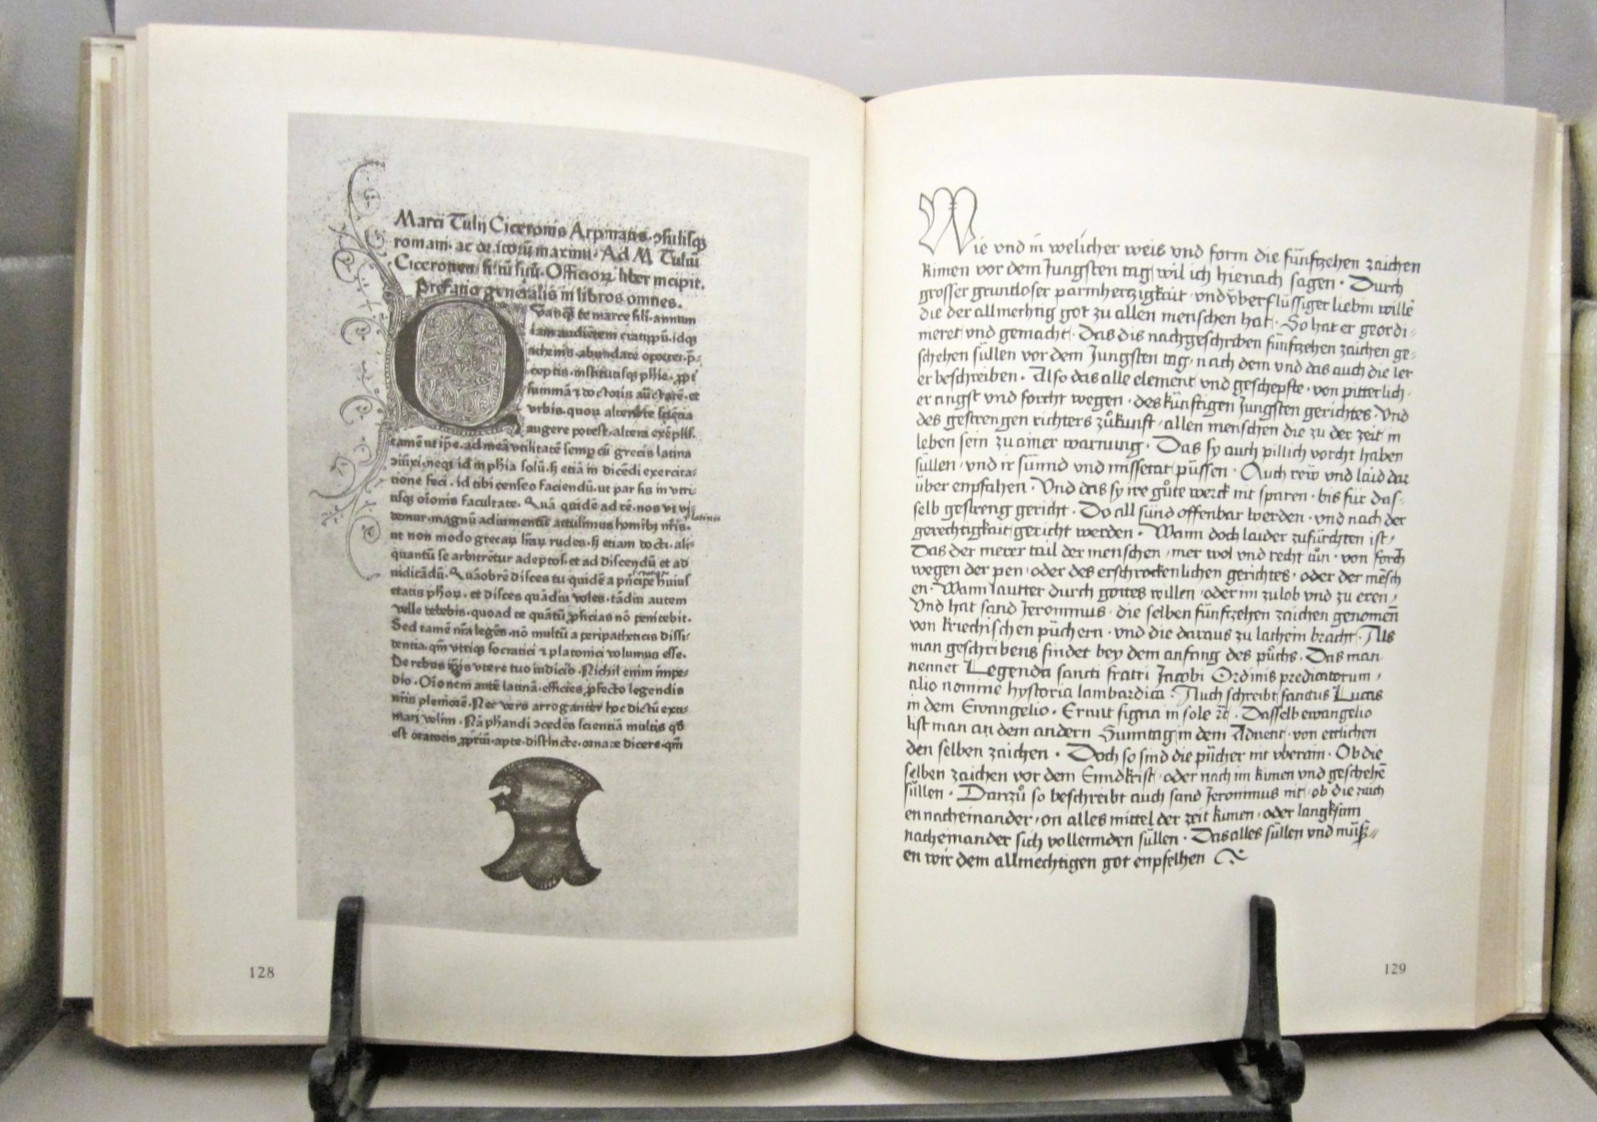 Marci Tulij Ciceronis Arpinatis ↄsulisq̃
romani. ac oratorũ maximi. Ad M Tuliũ
Ciceronem filiũ suũ. Officioꝝ liber incipit.
Prefatio generalis in libros omnes.
Quãq̃ te marce fili. annum
iam audientem cratippũ. idq̃
athenis. abundare oportet. p̃
ceptis. institutisq̃ phie. ꝓpt
summã ⁊ doctoris auctoritatẽ. et
urbis. quoꝝ alter te scientia
augere potest. altera exẽplis.
tamẽ ut ipe. ad meã utilitatẽ semp cũ grecis latina
ↄiũxi. neq̃ id in phia solũ. sꝫ etiã in dicẽdi exercita-
tione feci. id tibi censeo faciendũ. ut par sis in utri
usq̃ orõnis facultate. Quã quidẽ ad rẽ. nos ut vi
latinis
demur. magnũ adiumentũ attulimus hominibꝫ nr̃is.
ut non modo grecaꝝ lr̃aꝝ rudes. sꝫ etiam docti. ali-
quantũ se arbitrẽtur adeptos. et ad discendũ et ad
iudicãdũ. Quãobrẽ disces tu quidẽ a prĩcipe huius
etatis phõꝝ. et disces quãdiu voles. tãdiu autem
velle debebis. quoad te quãtũ ꝓficias nõ penitebit.
Sed tamẽ nr̃a legẽs. nõ multũ a peripatheticis dissi-
dentia. qm̃ utriq̃ socratici ⁊ platonici volumus esse.
De rebus ip̃is utere tuo iudicio. Nichil enim impe-
dio. Orõnem autẽ latinã. efficies ꝓfecto legendis
nr̃is pleniorẽ. Nec vero arroganter hoc dictũ exti-
mari velim. Nã phandi ↄcedẽs scientiã multis qđ
est oratoris ꝓpriũ. apte. distincte. ornate dicere. qm̃
128
Wie vnd in welicher weis vnd form die fünfzehen zaichen
kimen vor dem Jungsten tag wil ich hienach sagen · Durch
grosser grundloser parmherzigkait · vnd vberflüssiger liebin wille
die der allmechtig got zu allen menschen hat · So hat er geordi-
nieret vnd gemacht · Das dis nachgeschriben fünfzehen zaichen ge-
schehen süllen vor dem Jungsten tag · nach dem vnd das auch die ler
er beschreiben · Also das alle element vnd geschepfte · von pitterlich
er angst vnd forcht wegen · des künftigen Jungsten gerichtes · Vnd
des gestrengen richters zůkunft · allen menschen die zu der zeit in
leben sein zu ainer warnung · Das sy auch pillich vorcht haben
süllen · vnd ir sünnd vnd missetat püssen · Auch rew vnd laid dar
über empfahen · Vnd das sy ire gůte werck nit sparen · bis für das-
selb gestreng gericht · Do all sünd offenbar werden · vnd nach der
gerechtigkait gericht werden · Wann doch laider zufürchten ist ·
Das der merer tail der menschen · mer wol vnd recht tůn · von forch
wegen der pen · oder des erschrockenlichen gerichtes · oder der mẽsch
en · Wann lautter durch gottes willen · oder im zulob vnd zu eren ·
Vnd hat sand Jeronimus · die selben fünfzehen zaichen genomen
von kriechischen püchern · vnd die daraus zu lathein bracht · Als
man geschribens findet bey dem anfang des půchs · Das man
nennet Legenda sancti fratri Jacobi Ordinis predicatorum ·
alio nomine hystoria lambardica · Auch schreibt sanctus Lucas
in dem Ewangelio · Erunt signa in sole ⁊c̃ · Dasselb ewangelio
list man an dem andern Sunntag in dem Aduent · von ettlichen
den selben zaichen · Doch so sind die pücher nit vberain · Ob die
selben zaichen vor dem Enndkrist · oder nach im kimen vnd geschehẽ
süllen · Darzů so beschreibt auch sand Jeronimus nit · ob die zaich
en nacheinander · on alles mittel der zeit kimen · oder langksam
nacheinander sich vollennden süllen · Das alles süllen vnd müß-
en wir dem allmechtigen got enpfelhen
129